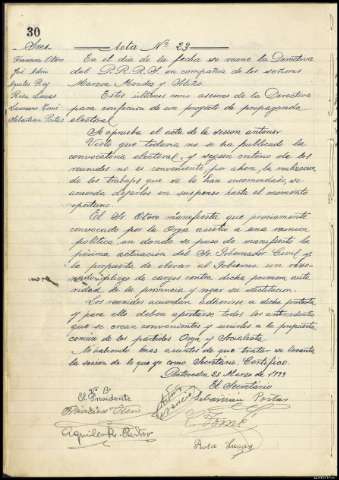 30
Acta Nº 23
Sres.
Francisco Otero
José Adán
Aquiles Rey
Rosa Luces
Laureano Tomé
Sebastian Portas
En el dia de la fecha se reune la Directiva
del P.R.R.S. en compañia de los señores
Marcos Mendez y
Estos ultimos como asesores de la Directiva
para confeccion de un proyecto de propaganda
electoral.
Se aprueba el acta de la sesion anterior
Visto que todavia no se ha publicado la
convocatoria electoral, y segun criterio de los
reunidos no es conveniente por ahora la realizacion
de los trabajos que se le han encomendado, se
acuerda dejarlos en suspenso hasta el momento
oportuno.
El Sr Otero manifiesta que previamente
convocado por la Orga asistio a una reunion
politica en donde se puso de manifiesto la
pésima actuacion del Sr Gobernador Civil y
la propuesta de elevar al Gobierno un
pliego de cargos contra dicha primera auto-
ridad de la provincia y rogar su destitucion.
Los reunidos acuerdan adherirse a dicha protesta
y para ello deben aportarse todos los antecedentes
que se crean convenientes y unirlos a la propuesta
comun de los partidos Orga y Socialista.
No habiendo mas asuntos de que tratar se levanta
la sesion de lo que yo como Secretario Certifico.
Pontevedra 23 Marzo de 1933
El Secretario
Sebastian Portas
Vº Bº
El Presidente
Francisco Otero
L Tomé
Rosa Luces